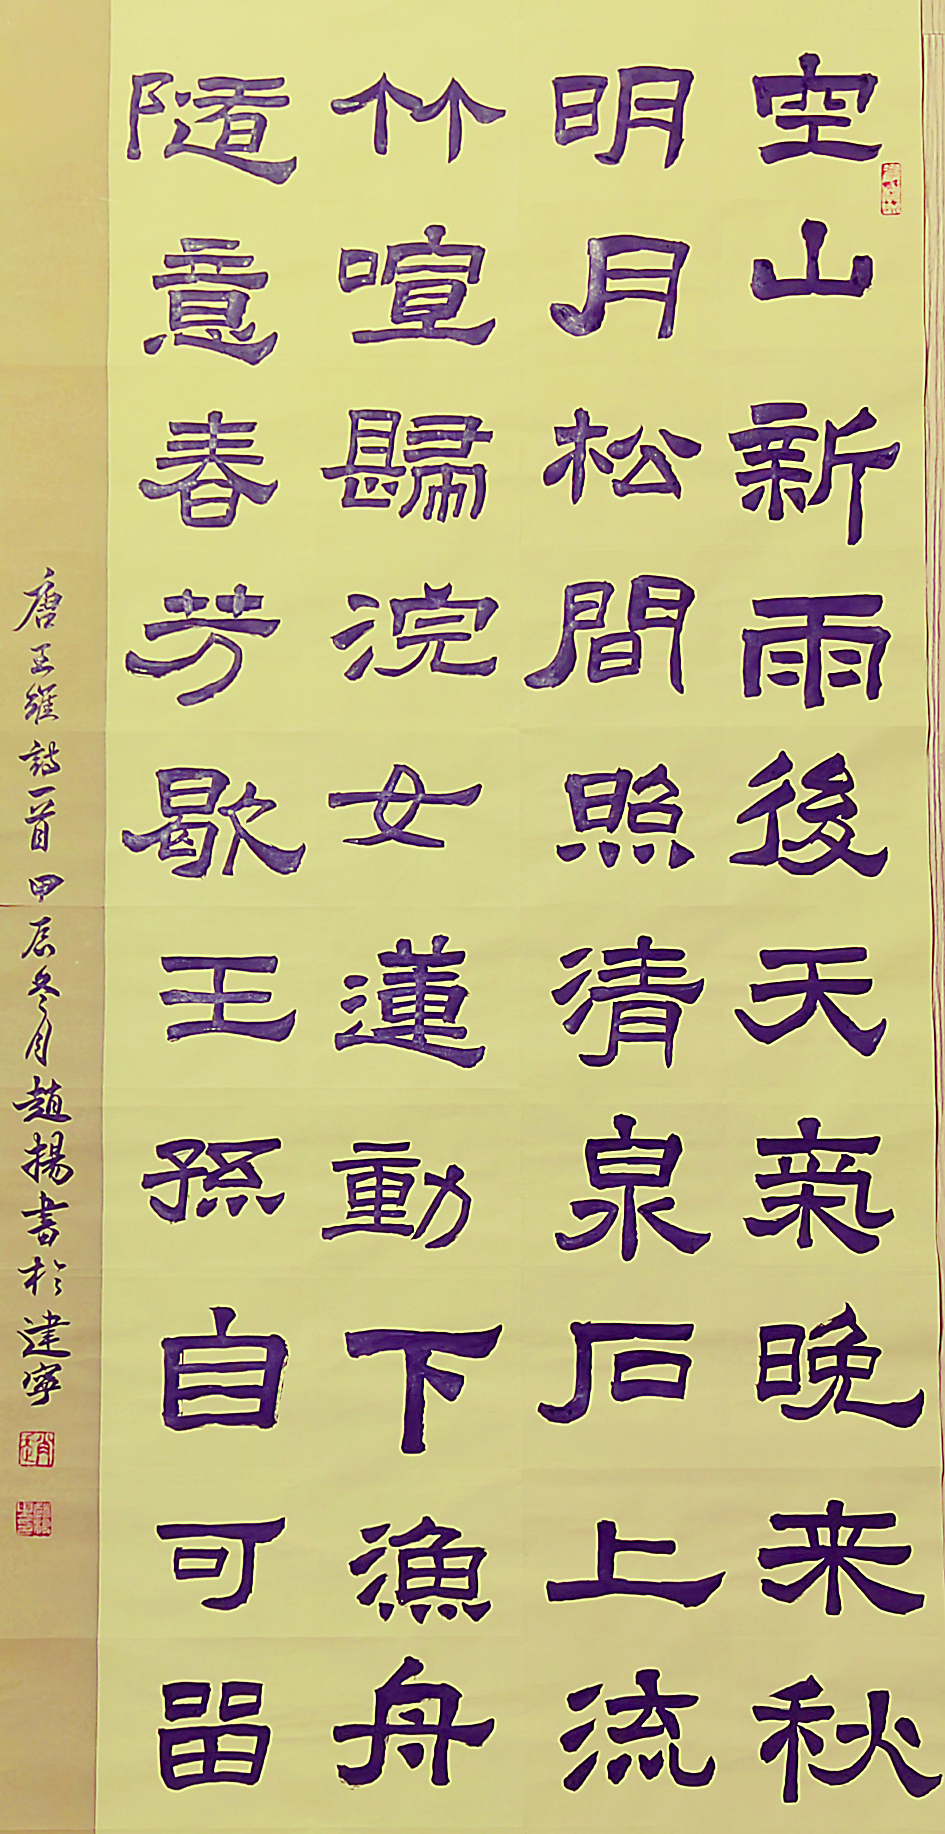 空山新雨後天氣晚来秋
明月松間照清泉石上流
竹喧歸浣女蓮動下漁舟
隨意春芳歇王孫自可留
唐王維詩一首甲辰冬月趙揚書於建寧